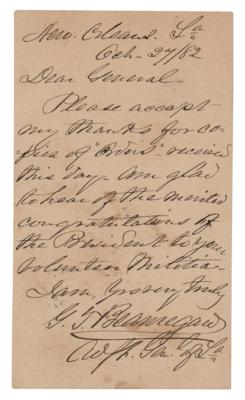 New Orleans. La
Oct. 27/82
Dear General-
Please accept
my thanks for co-
pies of "Orders" received
this day- Am glad
to hear of the merited
congratulations of
the President to your
Volunteer Militia-
I am, yrs very truly
G. T. Beauregard
Adjt. Gen. of La